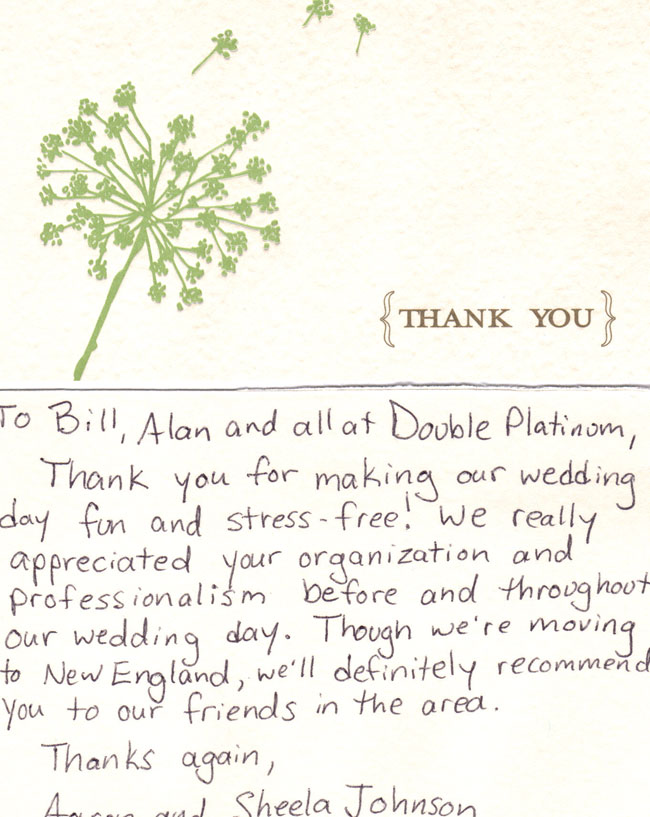 {THANK YOU}
To Bill, Alan and all at Double Platinum,
Thank you for making our wedding
day fun and stress-free! We really
appreciated your organization and
professionalism before and throughout
our wedding day. Though we're moving
to New England, we'll definitely recommend
you to our friends in the area.
Thanks again,
and Sheela Johnson